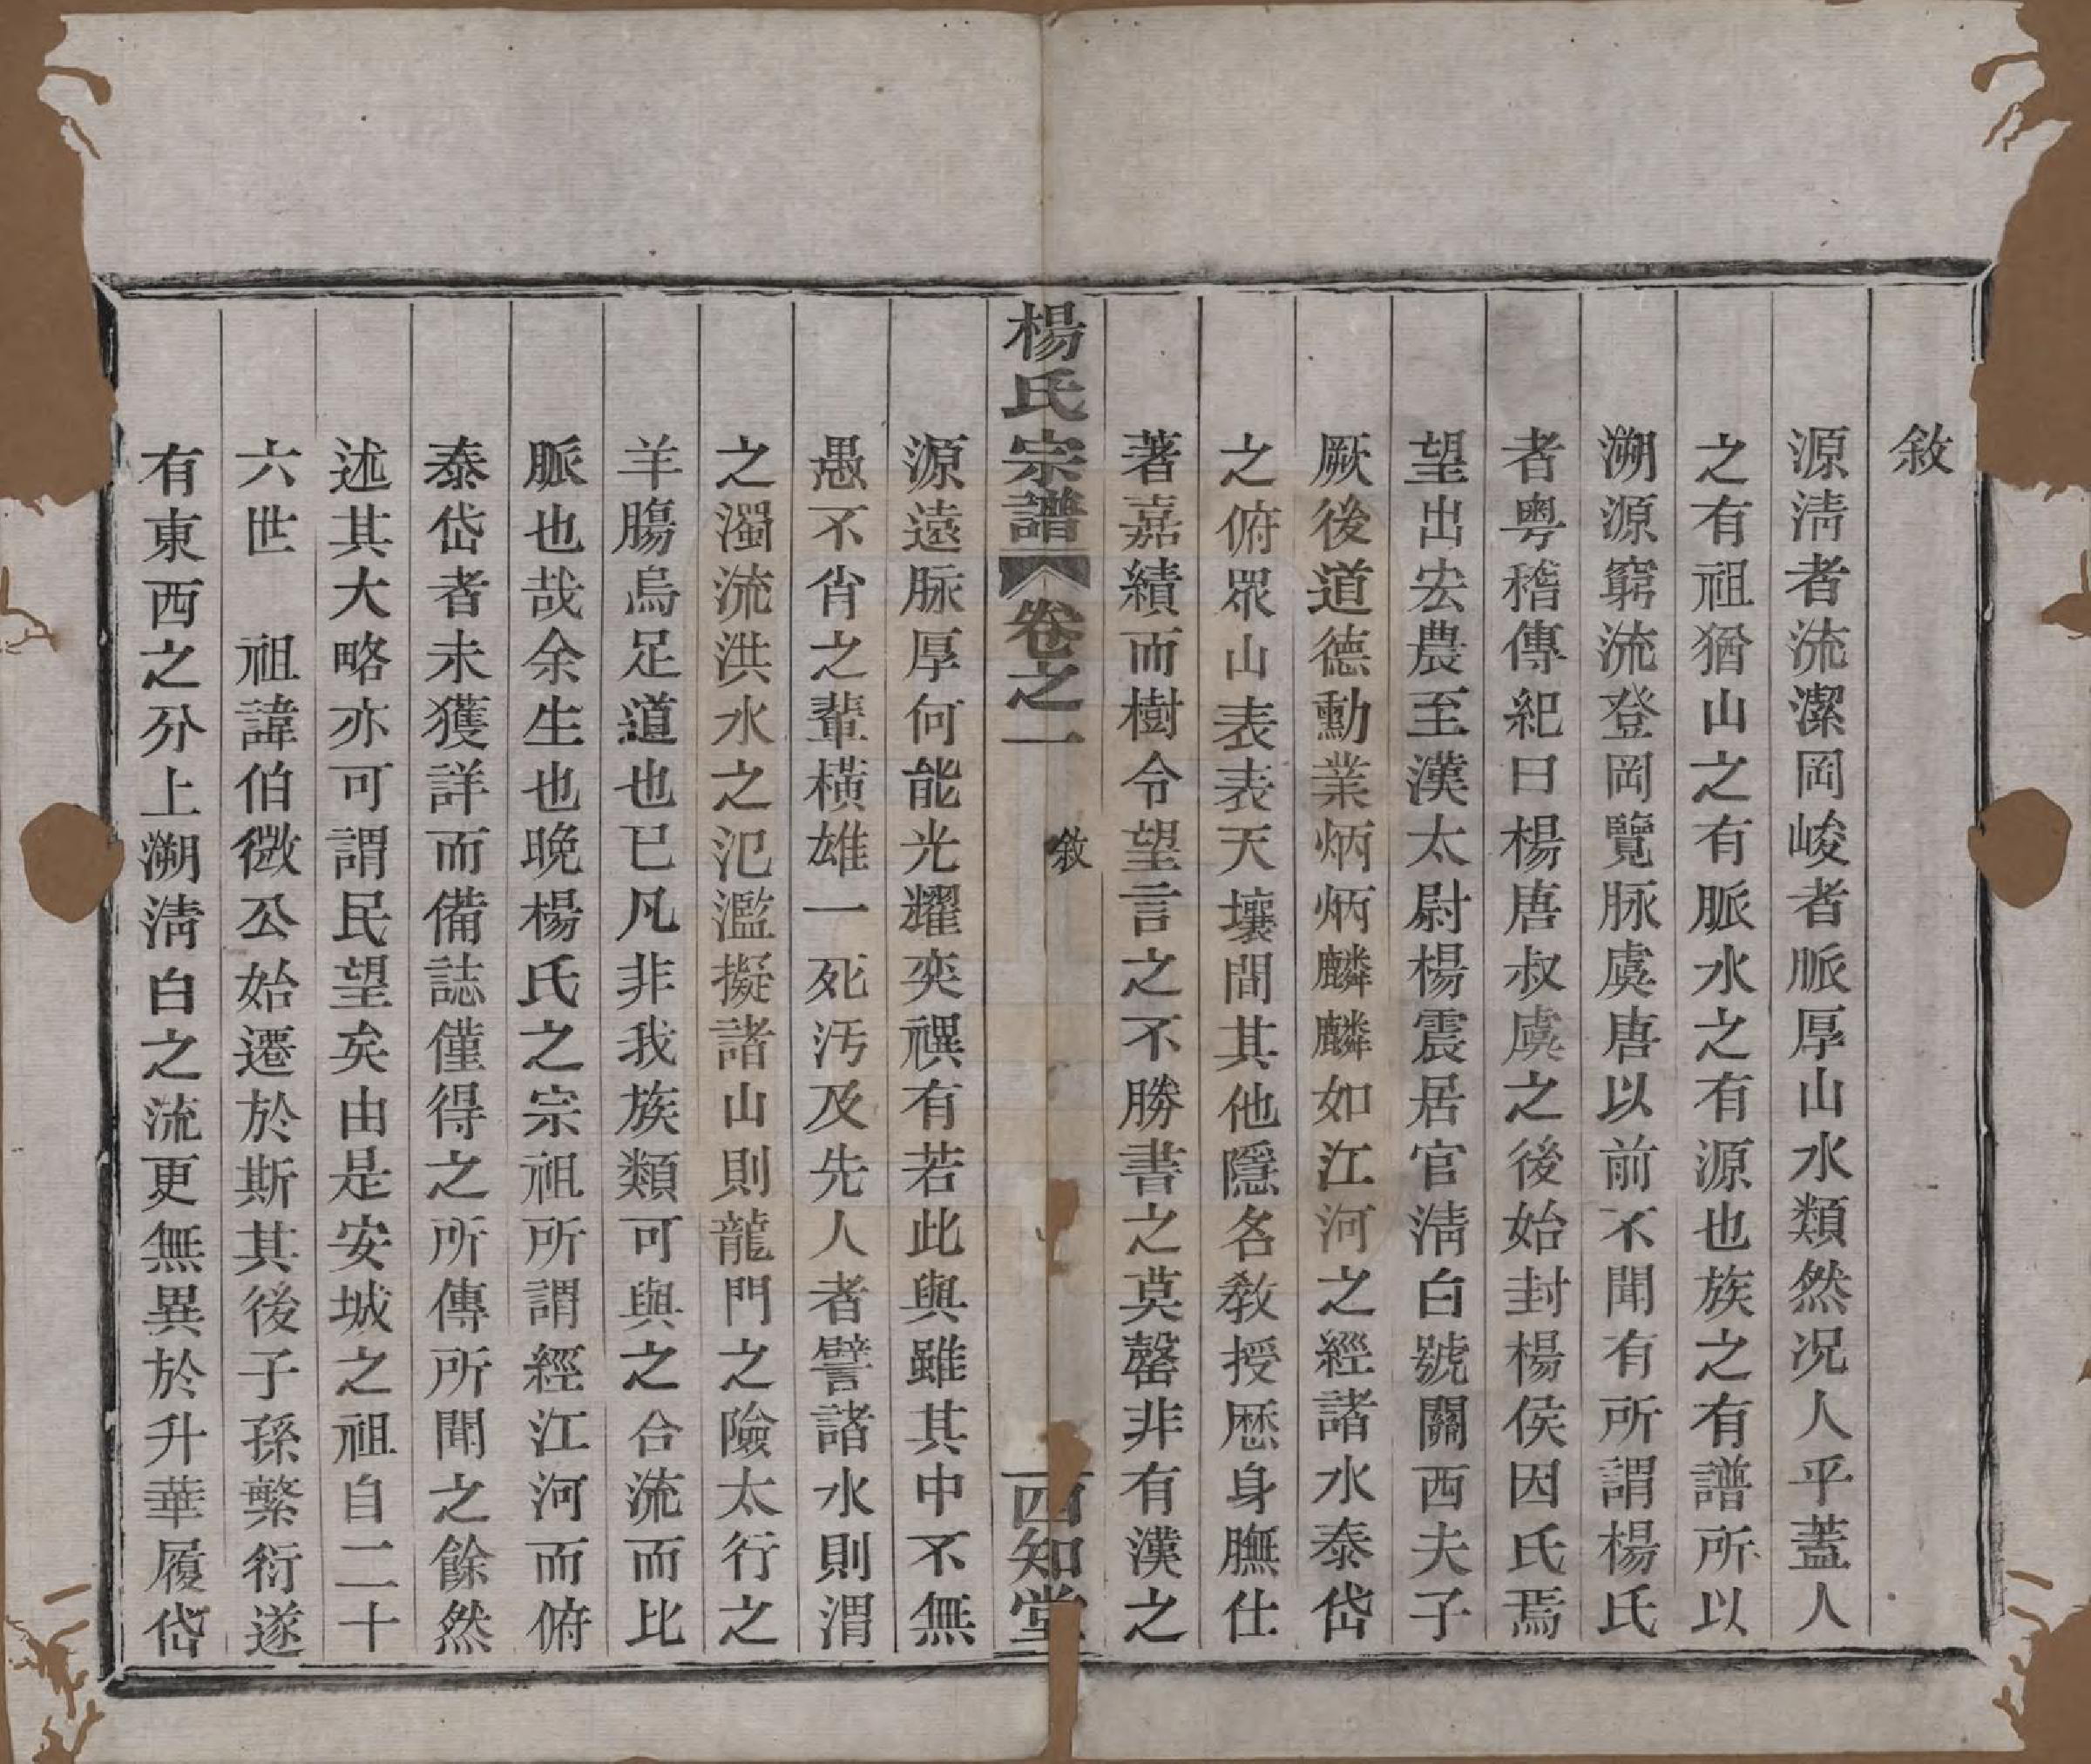 敘
源淸者流潔岡峻者脈厚山水類然况人乎蓋人
之有祖猶山之有脈水之有源也族之有譜所以
溯源窮流登岡覽脉虞唐以前不聞有所謂楊氏
者粤稽傳紀曰楊唐叔虞之後始封楊侯因氏焉
望出宏農至漢太尉楊震居官淸白號關西夫子
厥後道德勳業炳炳麟麟如江河之經諸水泰岱
之俯眾山表表天壤間其他隱各敎授歷身膴仕
著嘉績而樹令望言之不勝書之莫罄非有漢之
楊氏宗譜 卷之一 敘 四知堂
源遠脉厚何能光耀奕禩有若此與雖其中不無
愚不肖之輩橫雄一死汚及先人者譬諸水則渭
之濁流洪水之氾濫擬諸山則龍門之險太行之
羊腸烏足道也已凡非我族類可與之合流而比
脈也哉余生也晚楊氏之宗祖所謂經江河而俯
泰岱者未獲詳而備誌僅得之所傳所聞之餘然
述其大略亦可謂民望矣由是安城之祖自二十
六世　祖諱伯微公始遷於斯其後子孫繁衍遂
有東西之分上溯淸白之流更無異於升華履岱